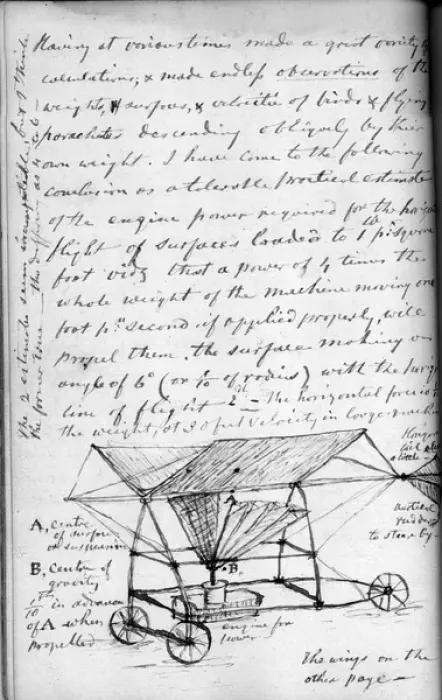 Having at various times made a great variety of
calculations, & made endless observations of the
weights, & surfaces, & velocities of birds & flying
parachutes descending obliquely by their
own weight. I have come to the following
conclusion as a tolerable practical estimate
of the engine power required for the horizontal
flight of surfaces loaded to 1 lb pr square
foot viz that a power of 4 times the
whole weight of the machine moving one
foot pr second if applied properly, will
propel them, the surface making an
angle of 6° (or 1/10 of radius) with the horizontal
line of flight
The horizontal force is
the weight, at velocity in large machines
The 2 estimates seem incompatible, but I think
the former true
A, centre
of surface
or suspension
B, Centre of
gravity
1/10 in advance
of A when
propelled
A
B.
engine for
power
vertical
rudder
to steer by
The wings on the
other page —